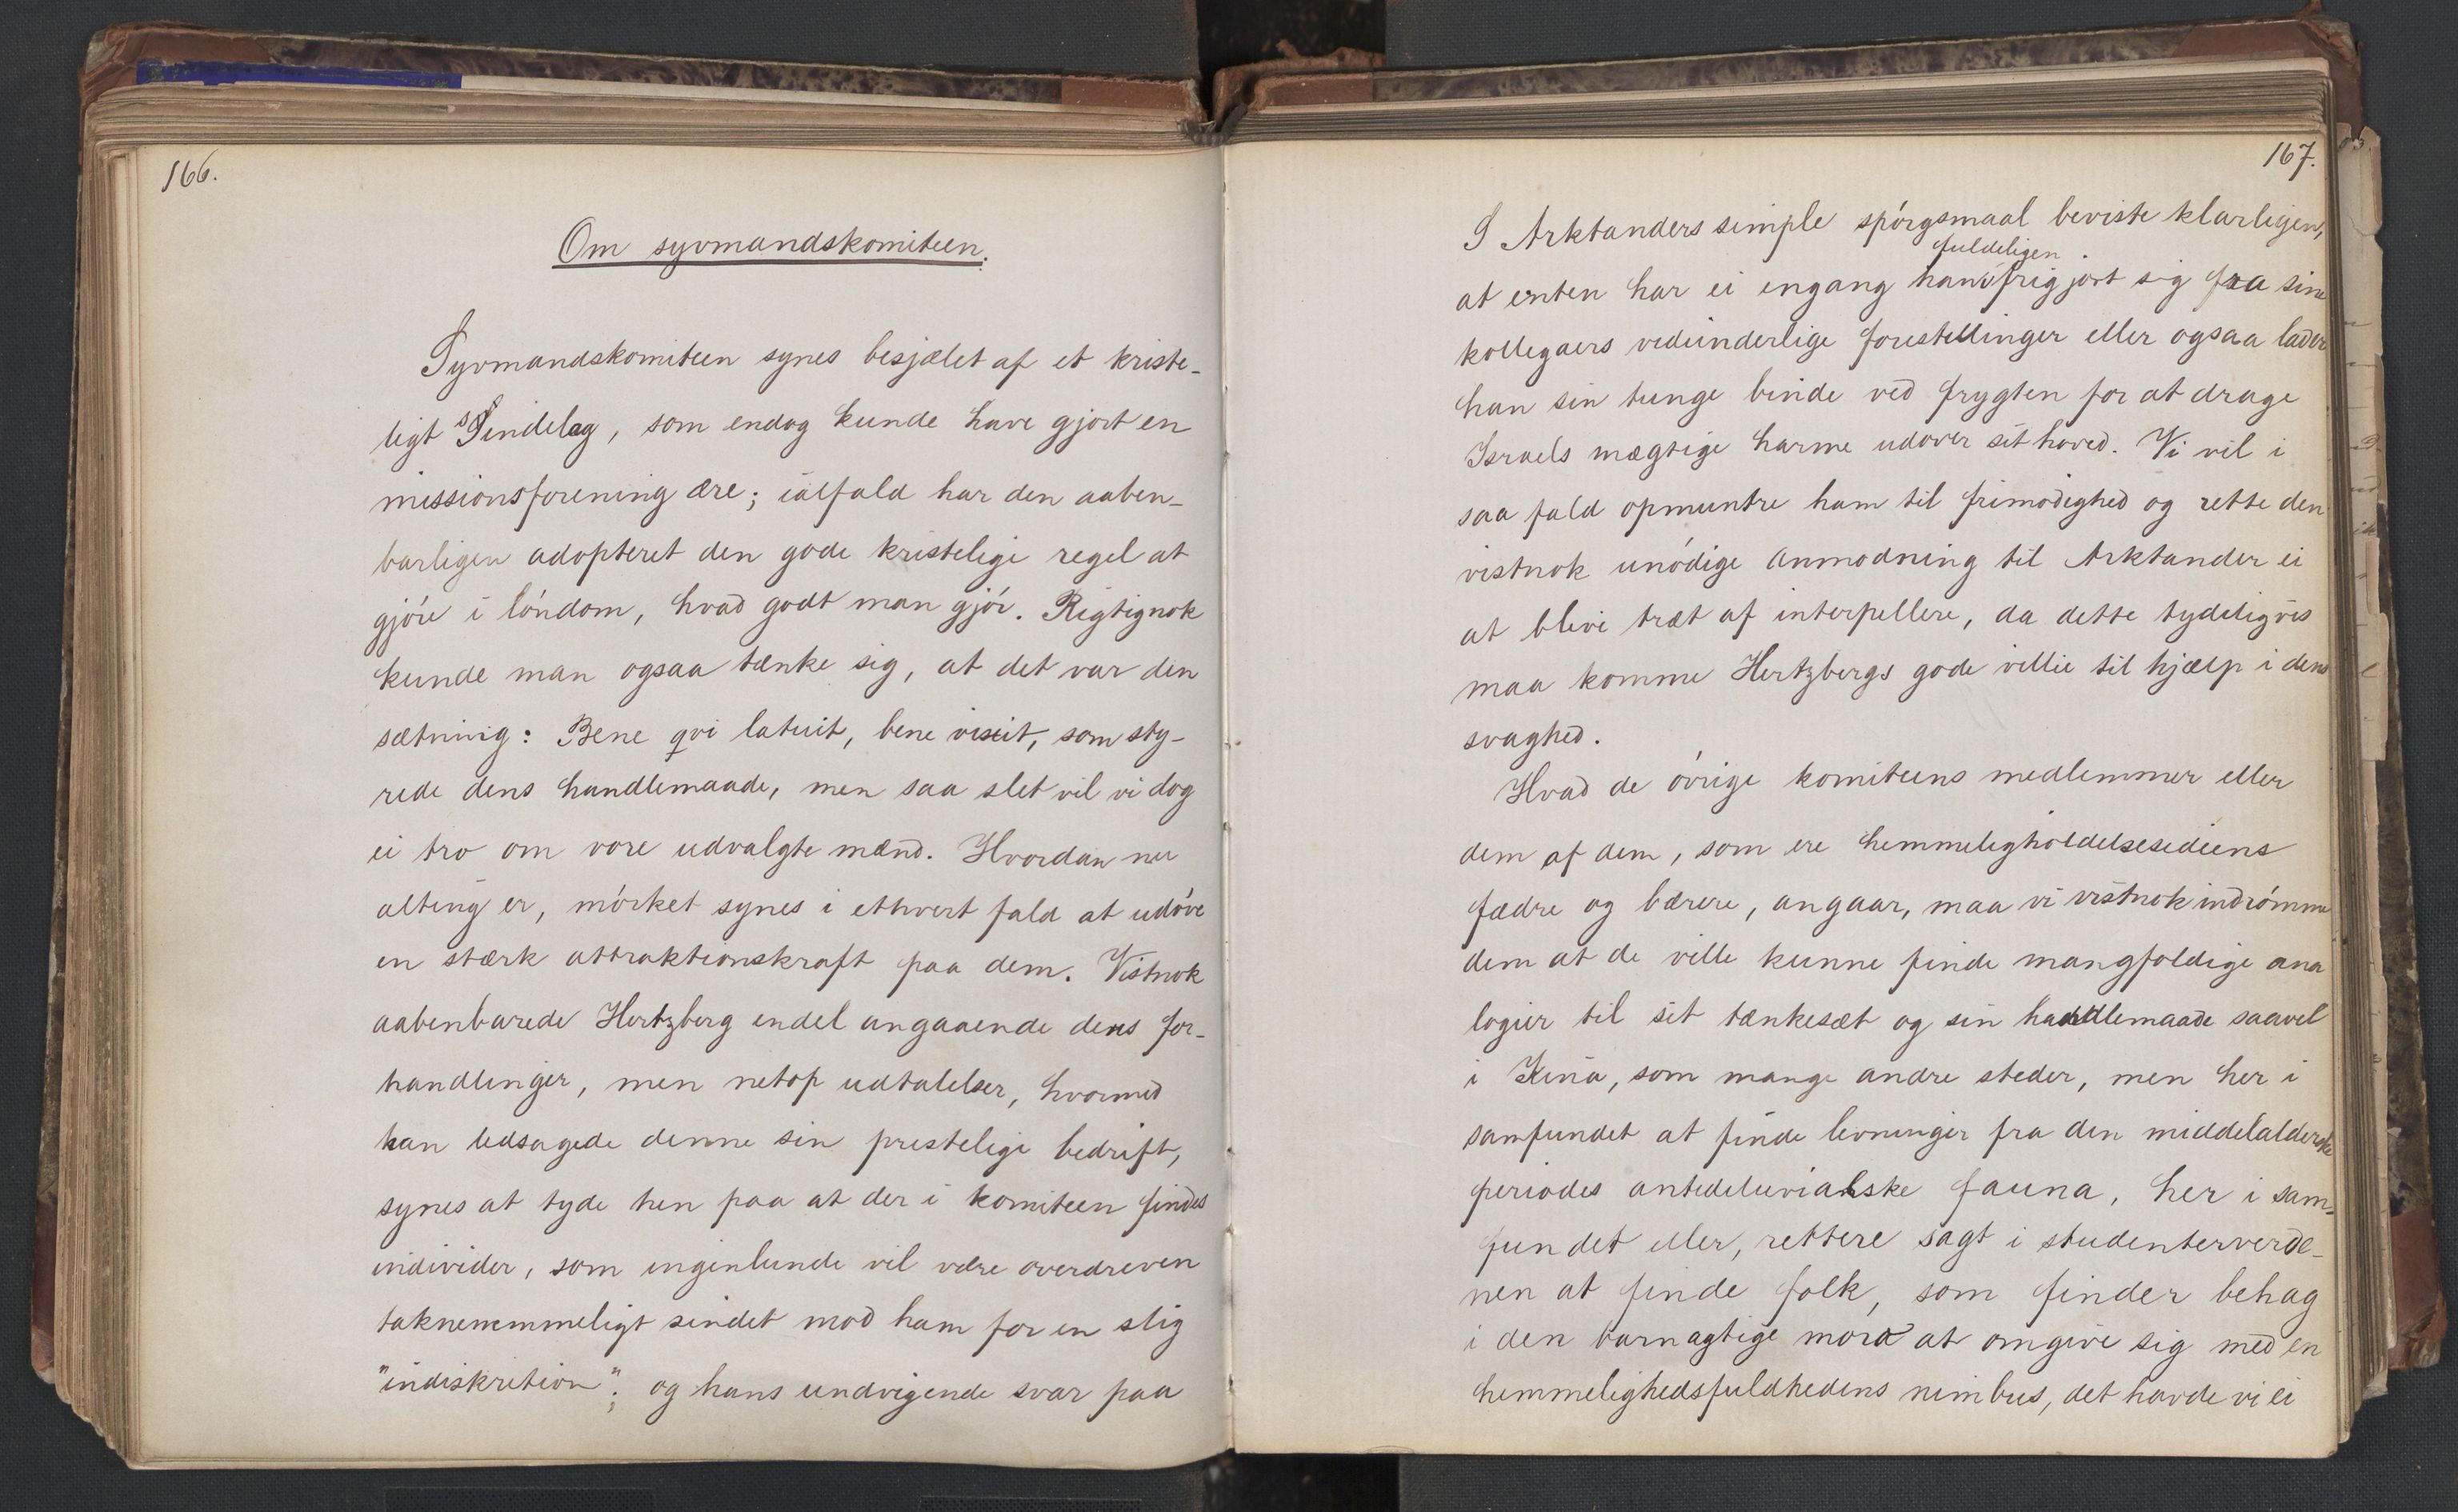 166.
Om syvmandskomiteen.
Syvmandskomiteen synes besjælet af et kriste-
ligt Sindelag, som endog kunde have gjort en
missionsforening ære; ialfald har den aaben-
barligen adopteret den gode kristelige regel at
gjóre i lóndom, hvad godt man gjór. Rigtignok
kunde man ogsaa tænke sig, at det var den
sætning: Bene qvi latuit, bene vixit, som sty-
rede dens handlemaade, men saa slet vil vi dog
ei tro om vore udvalgte mænd. Hvordan nu
alting er, mórket synes i ethvert fald at udóve
en stærk attraktionskraft paa dem. Vistnok
aabenbarede Hertzberg endel angaaende dens for-
handlinger, men netop udtalelser, hvormed
han ledsagede denne sin prestelige bedrift,
synes at tyde hen paa at der i komiteen findes
individer, som ingenlunde vil være overdreven
taknemmeligt sindet mod ham for en slig
"indiskretion"; og hans undvigende svar paa
167.
S Arktanders simple spórgsmaal beviste klarligen,
fuldeligen
at enten har ei engang han frigjort sig fra sine
kollegaers vidunderlige forestillinger eller ogsaa lader
han sin tunge binde ved frygten for at drage
Israels mægtige harme udover sit hoved. Vi vil i
saa fald opmuntre ham til frimodighed og rette den
vistnok unódige anmodning til Arktander ei
at blive træt af interpellere, da dette tydeligvis
maa komme Hertzbergs gode villie til hjælp i dens
svaghed.
Hvad de óvrige komiteens medlemmer eller
dem af dem, som ere hemmeligholdelsesideens
fædre og bærere, angaar, maa vi vistnok indrómme
dem at de ville kunne finde mangfoldige ana
logier til sit tænkesæt og sin handlemaade saavel
i Kina, som mange andre steder, men her i
samfundet at finde levninger fra den middelalderske
periodes antediluvianske fauna, her i sam-
fundet eller, rettere sagt i studenterverde-
nen at finde folk, som finder behag
i den barnagtige moro at omgive sig med en
hemmelighedsfuldhedens nimbus, det havde vi ei